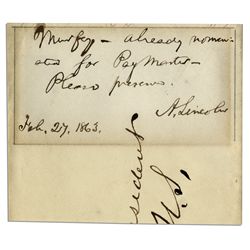 Murfey — already nomin-
ated for Pay Master —
Please preserve.
A. Lincoln
Feb. 27, 1863.
esident
U.S.